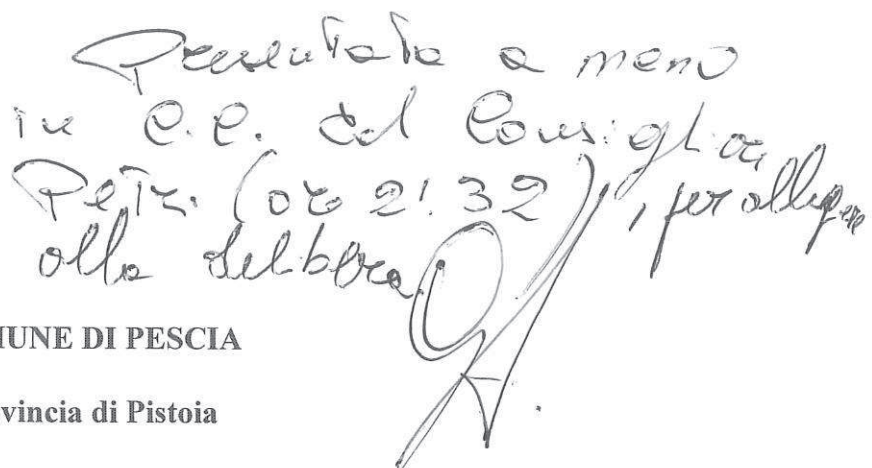 Presentata a mano
in C.C. dal Consigliere
(ore 21.32), per allegare
alla delibera
MUNE DI PESCIA
vincia di Pistoia